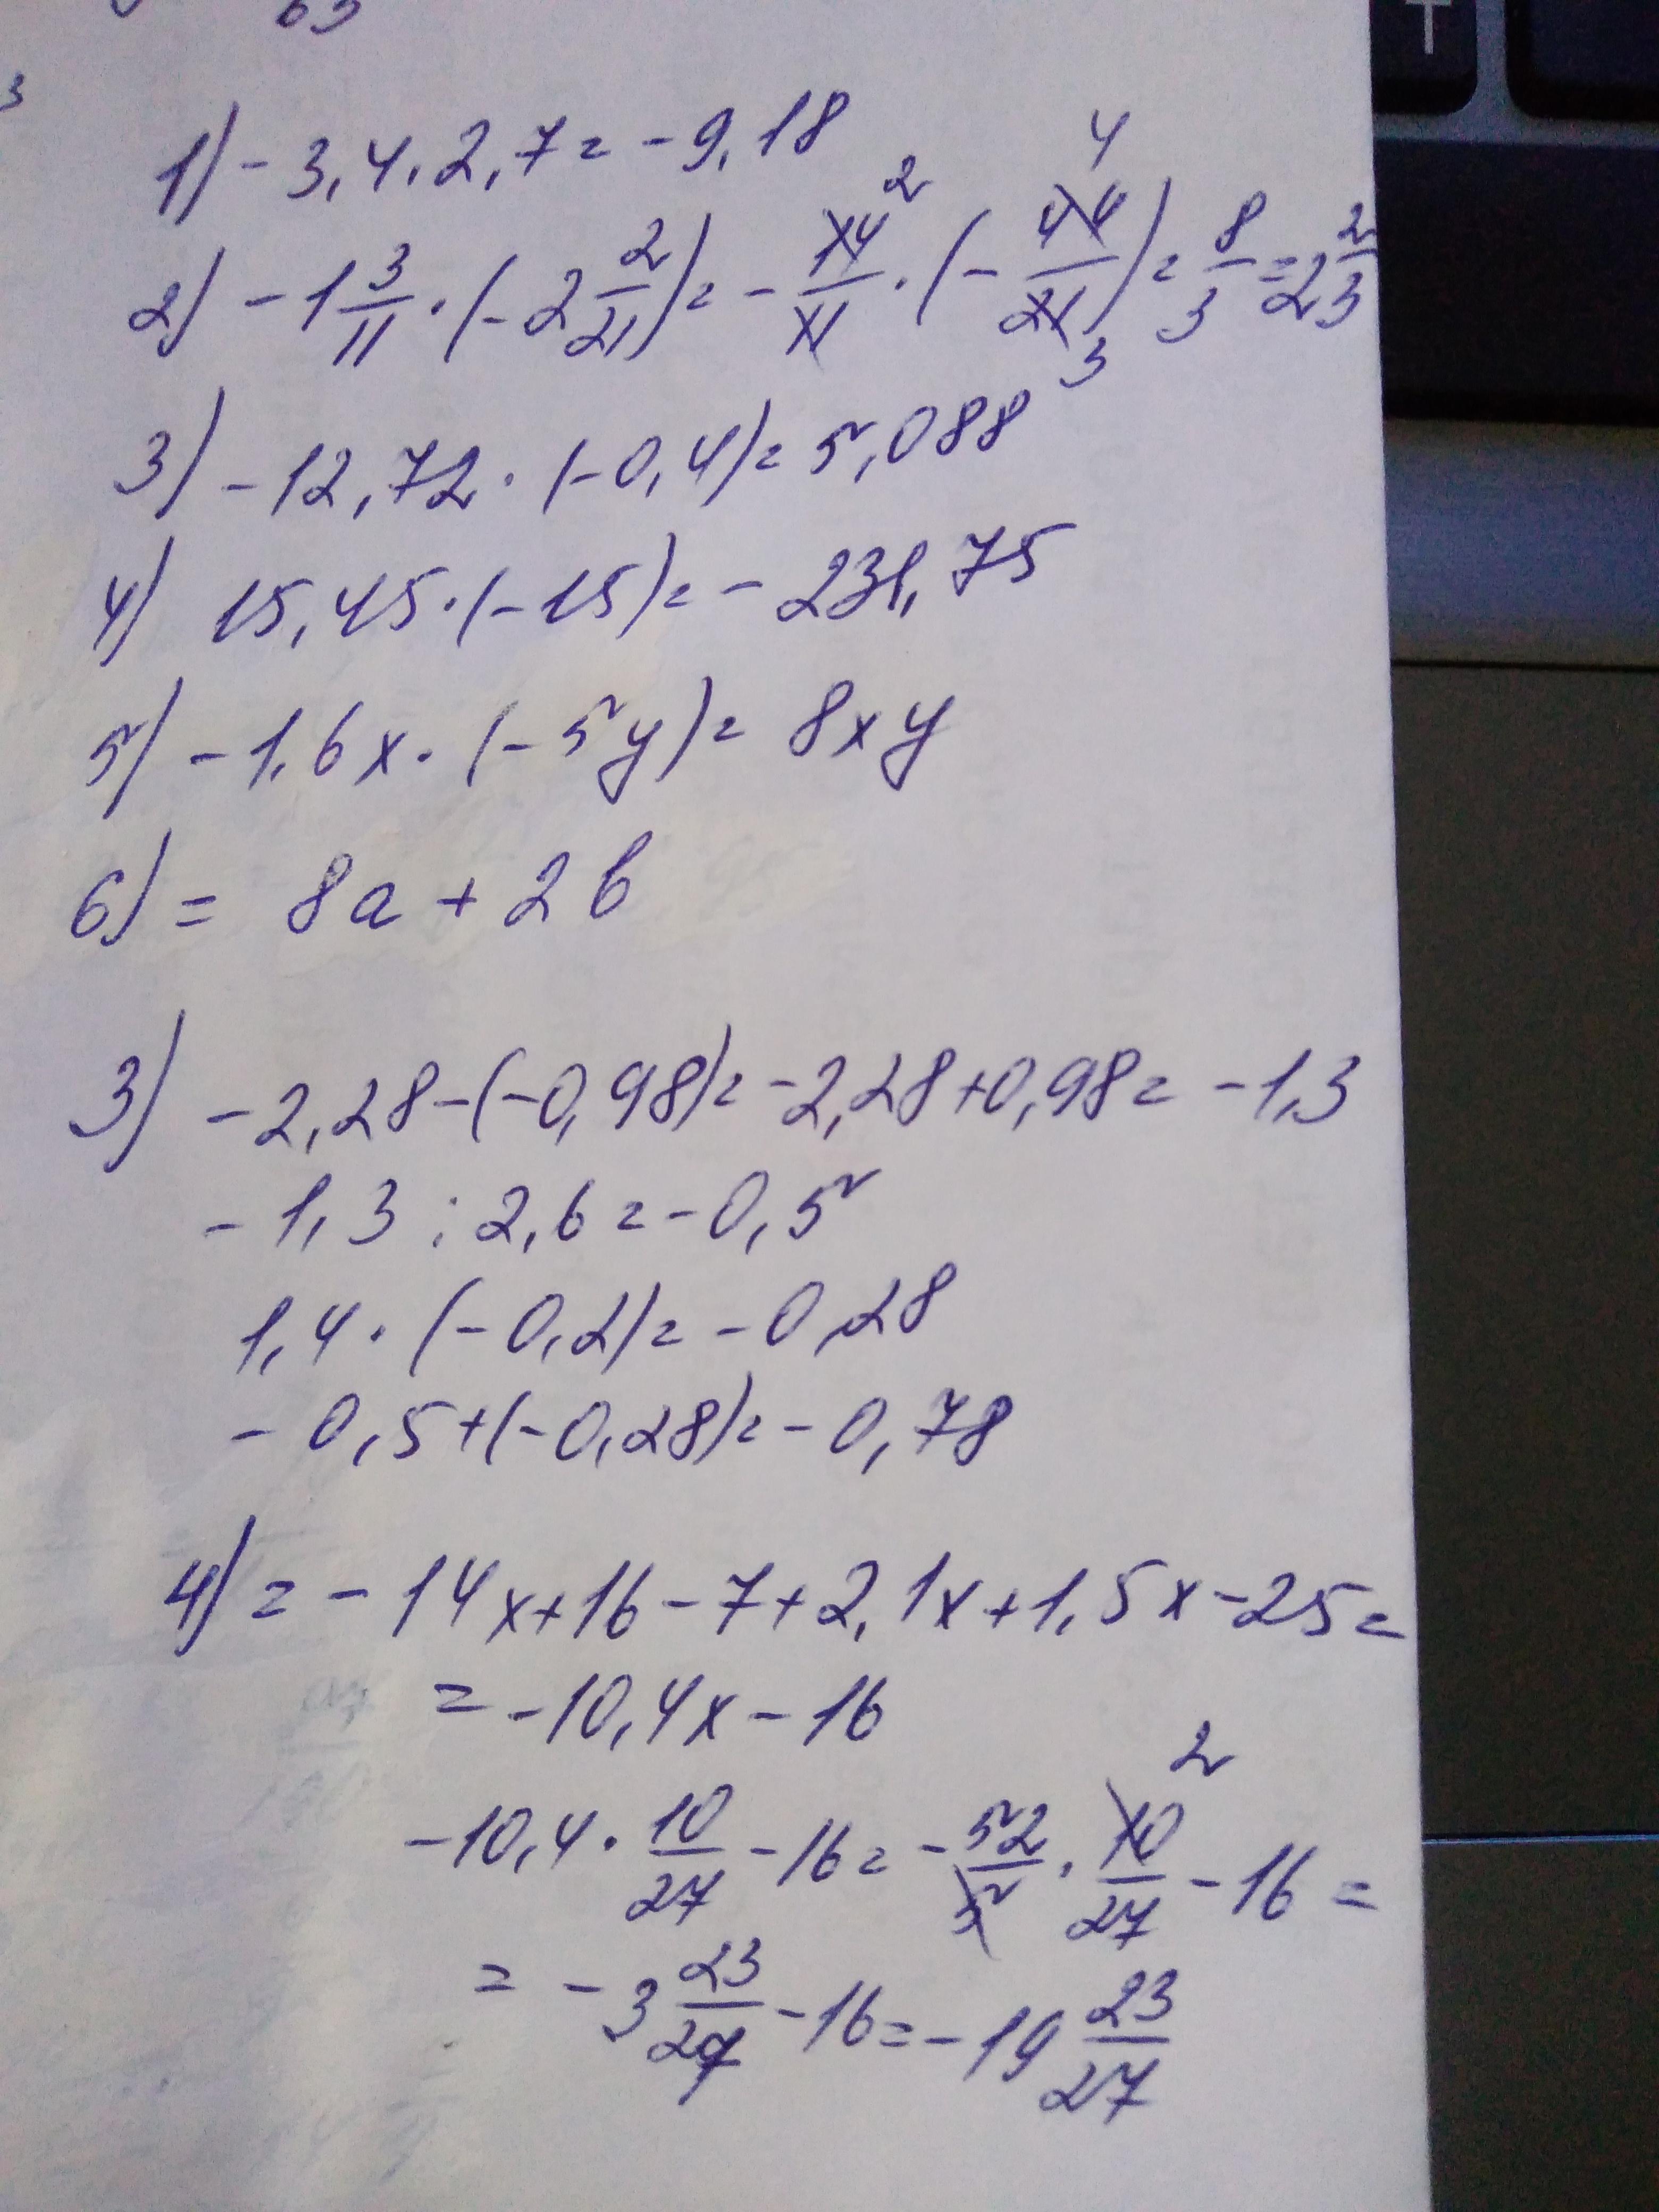 1) - 3,4 · 2,7 = - 9,18
2) - 1 3/11 · (- 2 2/21) = - 14/11 2 · (- 44/21) 4 3 = 8/3 = 2 2/3
3) - 12,72 · (- 0,4) = 5,088
4) 15,45 · (- 15) = - 231,75
5) - 1,6x · (- 5y) = 8xy
6) = 8a + 2b
3) - 2,28 - (- 0,98) = - 2,28 + 0,98 = - 1,3
- 1,3 : 2,6 = - 0,5
1,4 · (- 0,2) = - 0,28
- 0,5 + (- 0,28) = - 0,78
4) = - 14x + 16 - 7 + 2,1x + 1,5x - 25 =
= - 10,4x - 16
- 10,4 · 10/27 - 16 = - 52/5 · 10/27 2 - 16 =
= - 3 23/27 - 16 = - 19 23/27